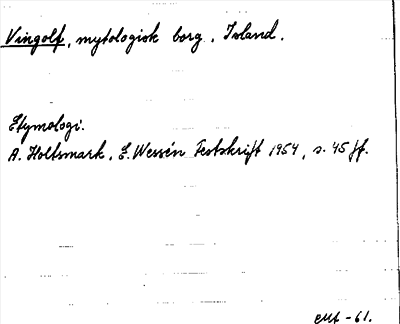 Vingolf, mytologisk borg. Island.
Etymologi.
A. Holtsmark, E. Wessén Festskrift 1954, s. 45 ff.
-61.